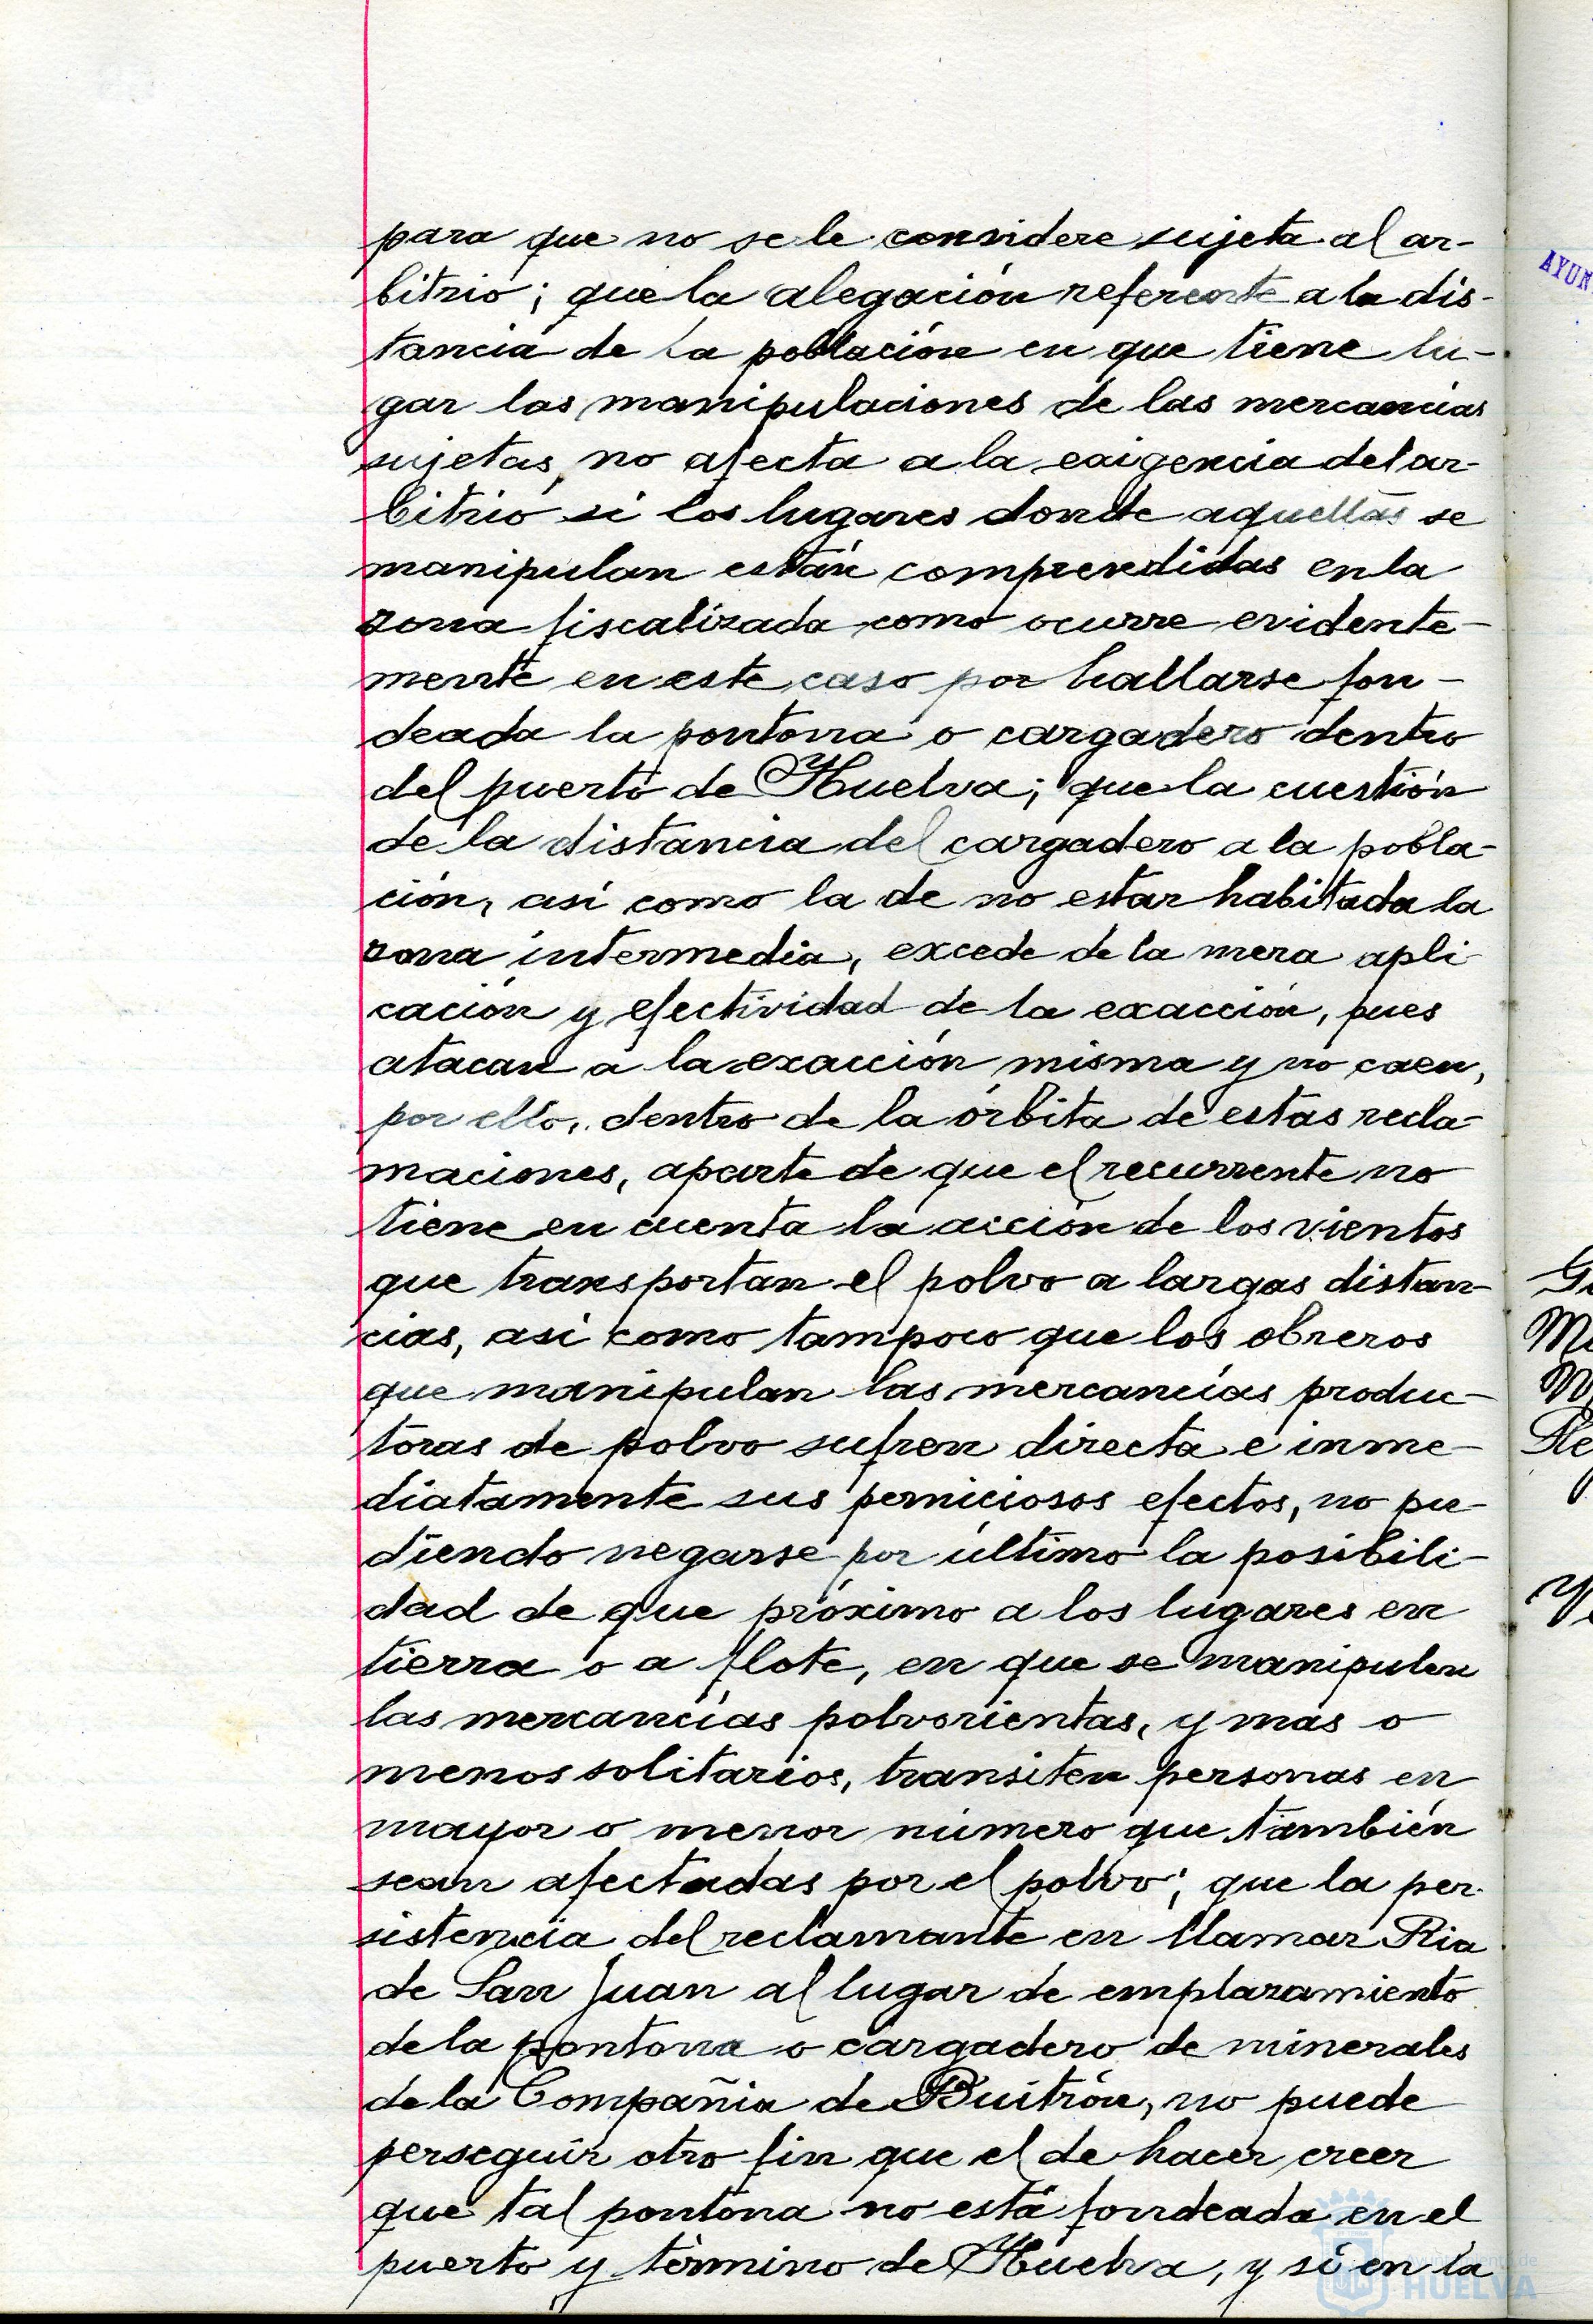 para que no se le considere sujeta al ar-
bitrio; que la alegación referente a la dis-
tancia de la población en que tiene lu-
gar las manipulaciones de las mercancias
sujetas, no afecta a la exigencia del ar-
bitrio si los lugares donde aquellas se
manipulan están comprendidas en la
zona fiscalizada como ocurre evidente-
mente en este caso por hallarse fon-
deada la pontona o cargadero dentro
del puerto de Huelva; que la cuestión
de la distancia del cargadero a la pobla-
ción, asi como la de no estar habitada la
zona intermedia, excede de la mera apli-
cación y efectividad de la exacción, pues
atacan a la exacción misma y no caen,
por ello, dentro de la órbita de estas recla-
maciones, aparte de que el recurrente no
tiene en cuenta la acción de los vientos
que transportan el polvo a largas distan-
cias, asi como tampoco que los obreros
que manipulan las mercancias produc-
toras de polvo sufren directa e inme-
diatamente sus perniciosos efectos, no pu-
diendo negarse por último la posibili-
dad de que próximo a los lugares en
tierra o a flote, en que se manipulen
las mercancias polvorientas, y mas o
menos solitarios, transiten personas en
mayor o menor número que también
sean afectadas por el polvo; que la per-
sistencia del reclamante en llamar Ria
de San Juan al lugar de emplazamiento
de la pontona o cargadero de minerales
de la Compañia de Buitrón, no puede
perseguir otro fin que el de hacer creer
que tal pontona no está fondeada en el
puerto y término de Huelva, y si en la
AYUN
HUELVA